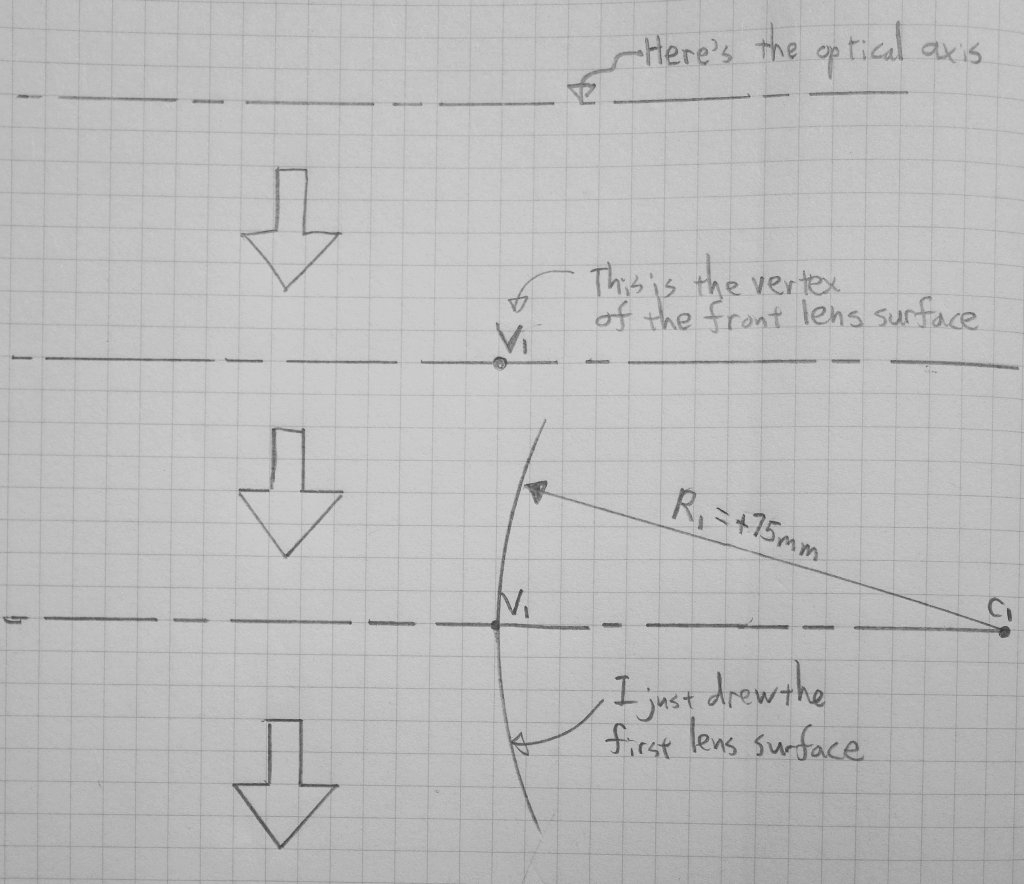 Here's the optical axis
This is the vertex
of the front lens surface
V₁
R₁ = +75mm
V₁
C₁
I just drew the
first lens surface